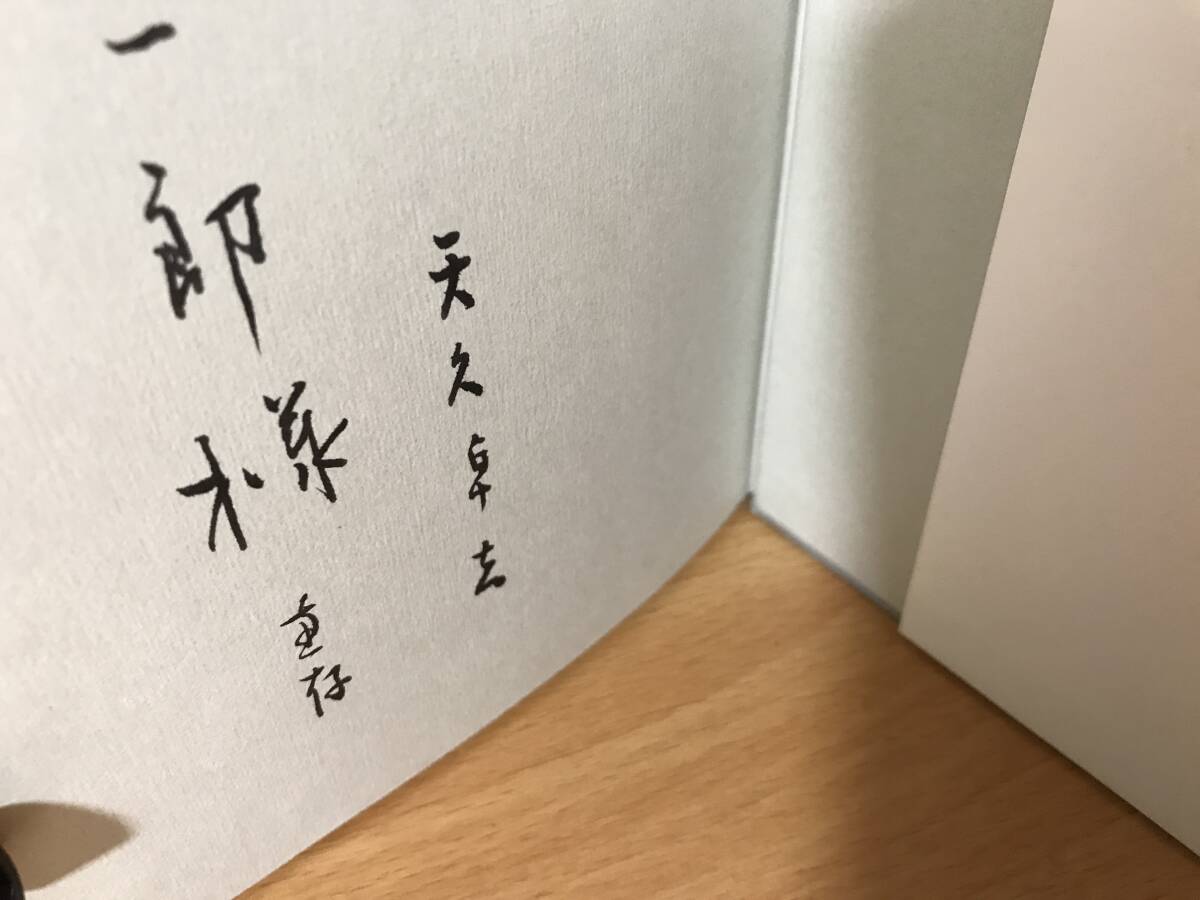 天久卓志
一郎様 恵存